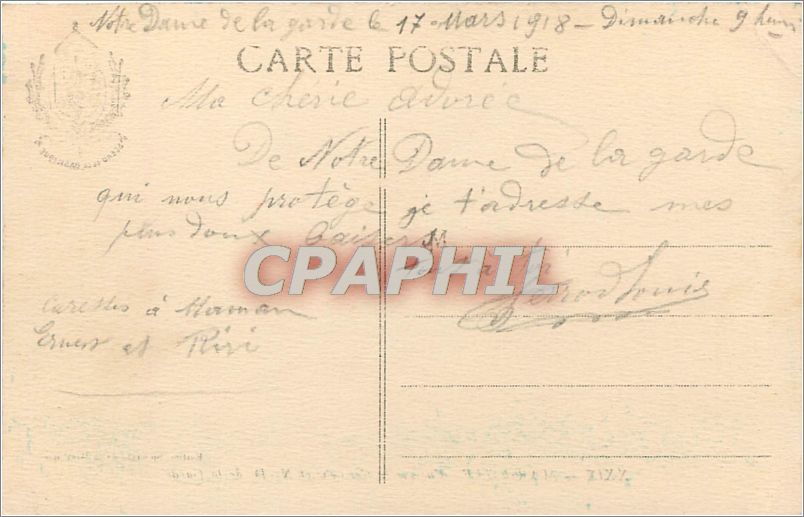 Notre Dame de la garde le 17 Mars 1918 - Dimanche 9 heures
CARTE POSTALE
Ma chérie adorée
De Notre Dame de la garde
qui nous protège je t'adresse mes
plus doux baisers
M
CPAPHIL
Louis
Caresses à Maman
Ernest et Riri